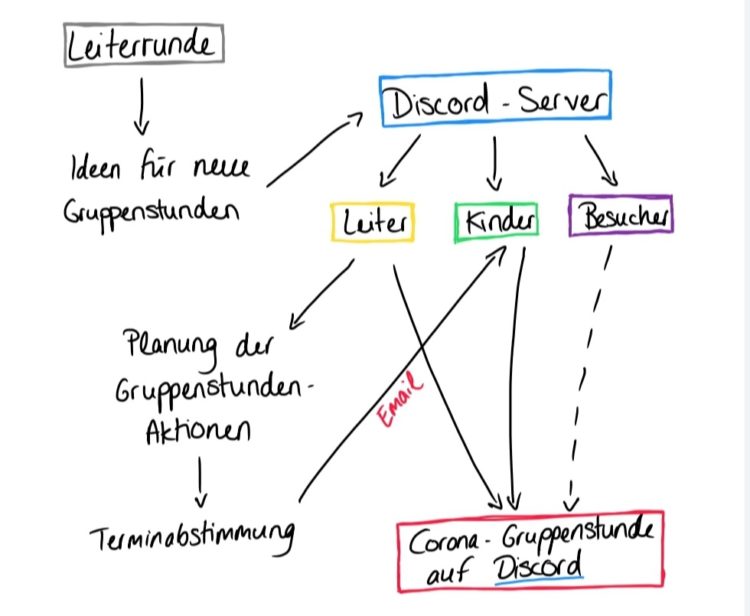 Leiterrunde
Ideen für neue
Gruppenstunden
Discord - Server
Leiter
Kinder
Besucher
Planung der
Gruppenstunden-
Aktionen
Terminabstimmung
Email
Corona - Gruppenstunde
auf Discord